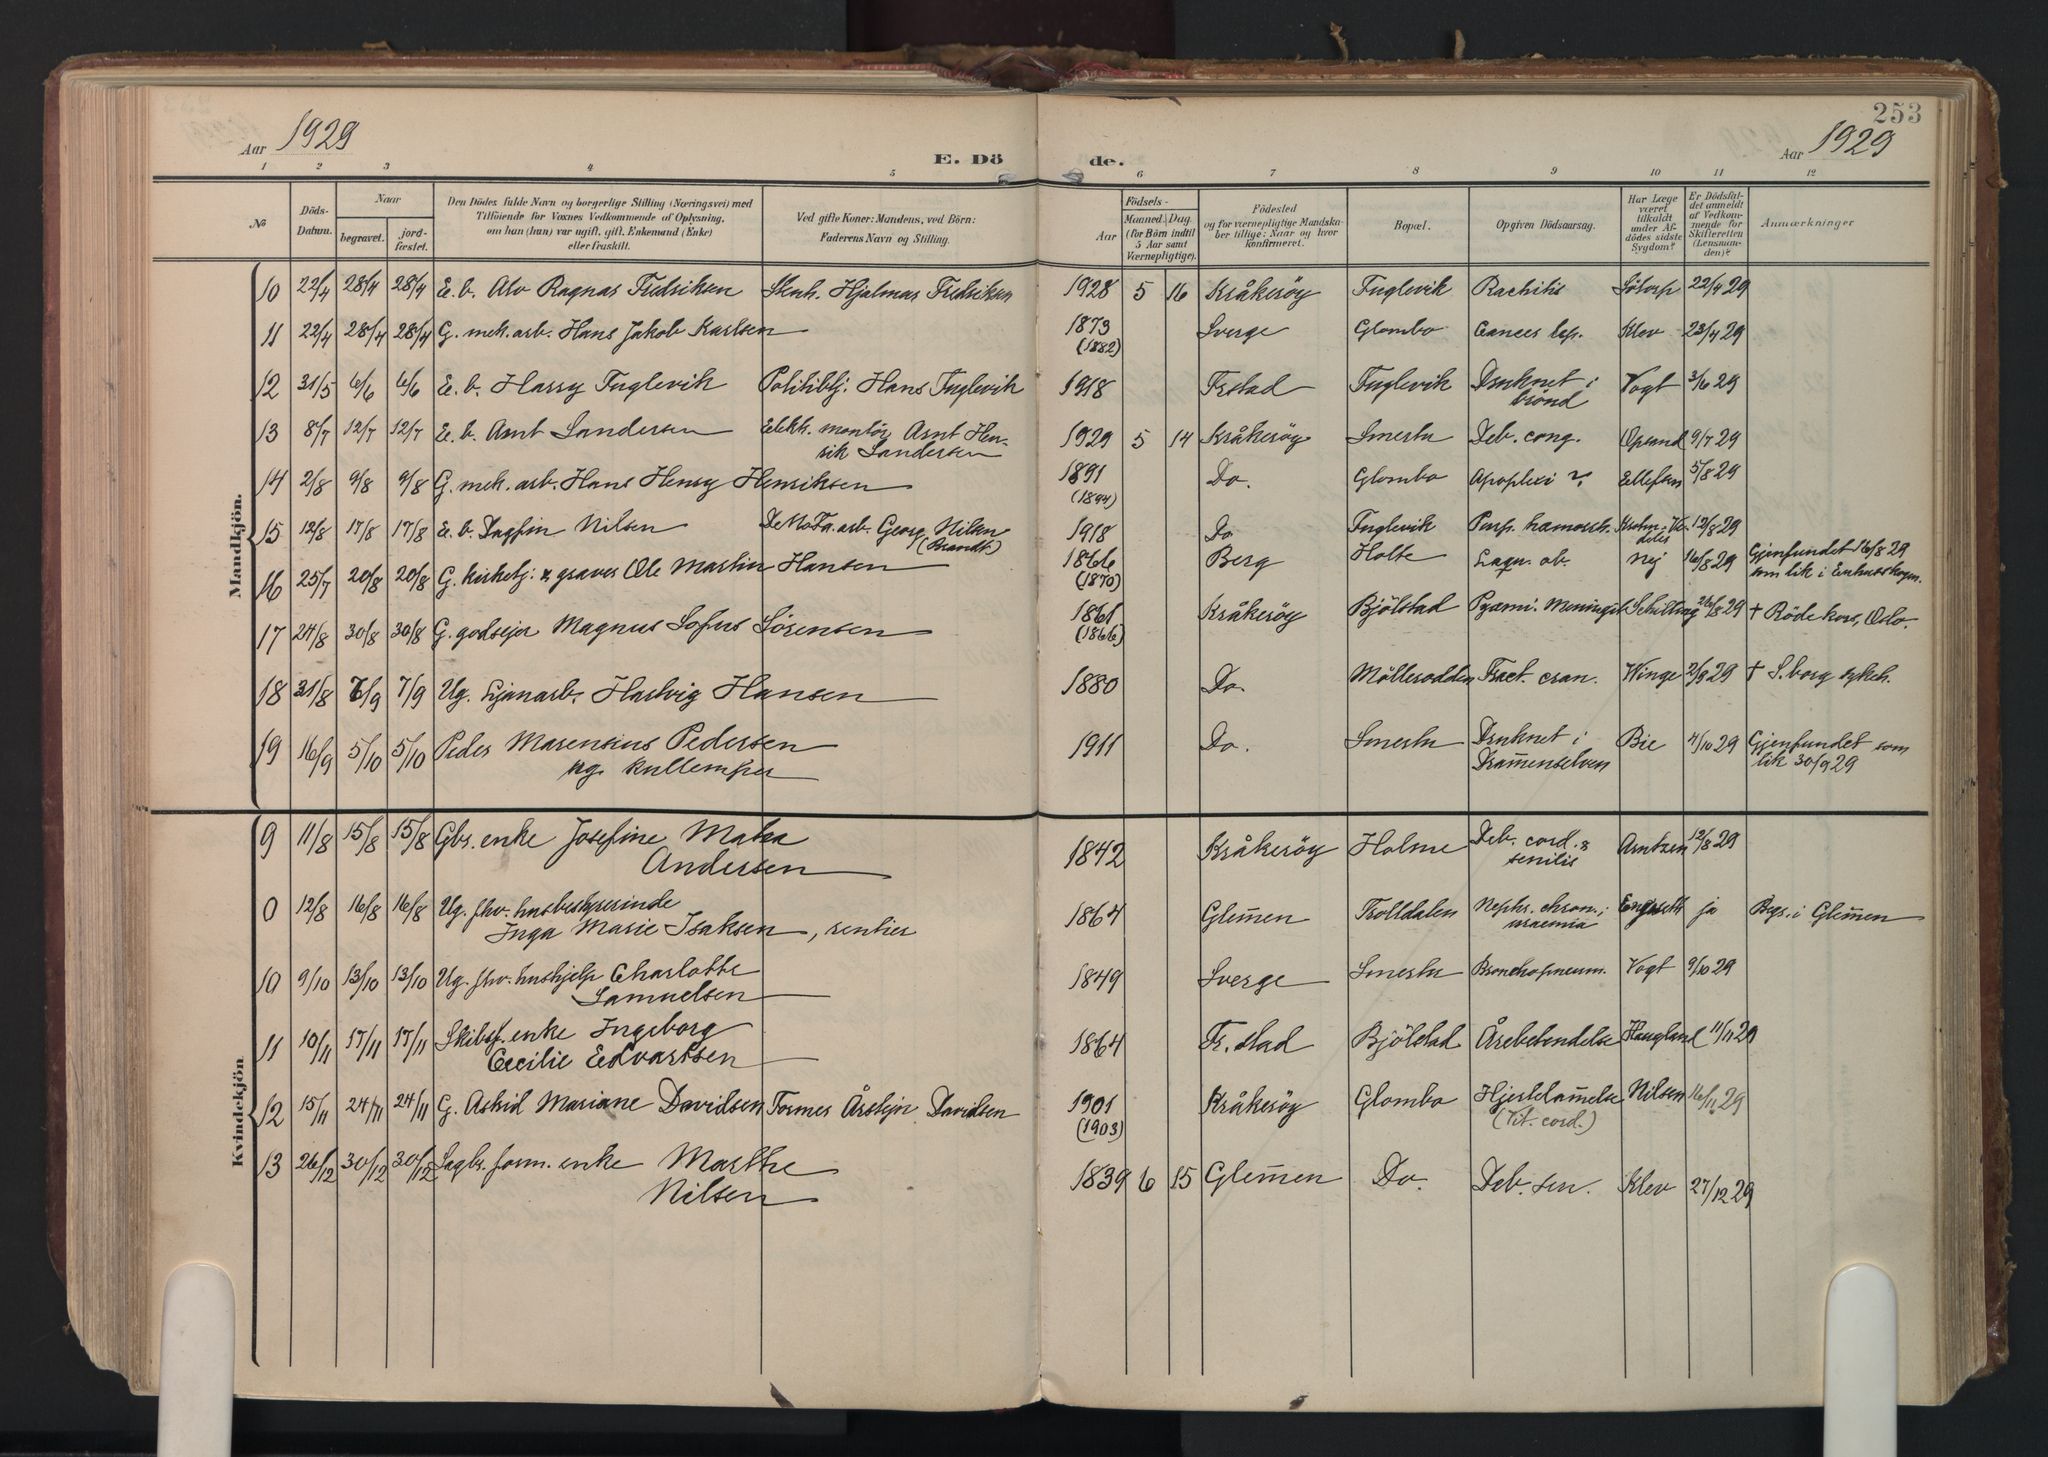 253
Aar 1929
E. Dö de.
Aar 1929
1 2 3 4 5 6 7 8 9 10 11 12
No
Döds-Datum.
Naar
begravet.
jord-fæstet.
Den Dödes fulde Navn og borgerlige Stilling (Næringsvei) med
Tilföiende for Voxnes Vedkommende af Oplysning,
om han (hun) var ugift, gift, Enkemand (Enke)
eller fraskilt.
Ved gifte Koner: Mandens, ved Börn:
Faderens Navn og Stilling.
Födsels-
Aar
Maaned. Dag.
(for Börn indtil
5 Aar samt
Værnepligtige).
Födested
og for værnepligtige Mandska-
ber tillige: Naar og hvor
konfirmeret.
Bopæl.
Opgiven Dödsaarsag.
Har Læge
været
tilkaldt
under Af-
dödes sidste
Sygdom?
Er Dödsfal-
det anmeldt
af Vedkom-
mende for
Skifteretten
(Lensman-
den)?
Anmærkninger
Mandkjön.
10 22/4 28/4 28/4 E. b. Alv Ragnar Fredriksen Hjalmar Fredriksen 1928 5 16 Kråkeröy Fuglevik Rachitis Sötorp 22/4 29
11 22/4 28/4 28/4 G. mek. arb. Hans Jakob Karlsen 1873 Sverge Glombo Cancer hep. Klev 23/4 29
(1882)
12 31/5 6/6 6/6 E. b. Harry Fuglevik Politibtj. Hans Fuglevik 1918 Frstad Fuglevik Druknet i Vogt 3/6 29
brönd
13 8/7 12/7 12/7 E. b. Arnt Sandersen Elektr. montör Arnt Hen- 1929 5 14 Kråkeröy Smertu Deb. cong. Opsand 9/7 29
rik Sandersen
14 2/8 9/8 9/8 G. mek. arb. Hans Henry Henriksen 1891 Do. Glombo Apoplexi ?. Ellefsen 5/8 29
(1894)
15 12/8 17/8 17/8 E. b. Dagfin Nilsen DeNoFa. arb. Georg Nilsen 1918 Do Fuglevik Purp. hæmorrh. 12/8 29
(Brandt)
16 25/7 20/8 20/8 G. kirketj. & graver Ole Martin Hansen 1866 Berg Holte Laqu. ob. nej 16/8 29 Gjenfundet 16/8 29
(1870) som lik i
17 24/8 30/8 30/8 G. godsejer Magnus Sofus Sörensen 1861 Kråkeröy Bjölstad Pyæmi. Meningit. Schilling 26/8 29 † Röde kors, Oslo.
(1866)
18 31/8 7/9 7/9 Ug. Hartvig Hansen 1880 Do. Möllerodden Fract. cran. Winge 2/9 29 † S.borg sykeh.
19 16/9 5/10 5/10 Peder Marensius Pedersen 1911 Do. Smertu Druknet i Bie 4/10 29 Gjenfundet som
ug. kullemper Dram̄enselven lik 30/9 29
Kvindekjön
9 11/8 15/8 15/8 Gbr. enke Josefine Matea 1842 Kråkeröy Holme Deb. cord. & Arntzen 12/8 29
Andersen senilis
0 12/8 16/8 16/8 Ug. fhv. husbestyrerinde 1864 Glem̄en Trolldalen Nephr. chron.; Engseth ja Begr. i Glem̄en
Inga Marie Isaksen, rentier uraemia
10 9/10 13/10 13/10 Ug. fhv. hushjelp Charlotte 1849 Sverge Smertu Bronchopneum. Vogt 9/10 29
Samuelsen
11 10/11 17/11 17/11 Skibsf. enke Ingeborg 1864 Fr. stad Bjölstad Årebetendelse Haugland 11/11 29
Cecilie Edvartsen
12 15/11 24/11 24/11 G. Astrid Mariane Davidsen Former Årstejn Davidsen 1901 Kråkeröy Glombo Hjertelam̄else Nilsen 16/11 29
(1903) (Vit. cord.)
13 26/12 30/12 30/12 Sagbr. form. enke Marthe 1839 6 15 Glem̄en Do. Deb. sen. Klev 27/12 29
Nilsen